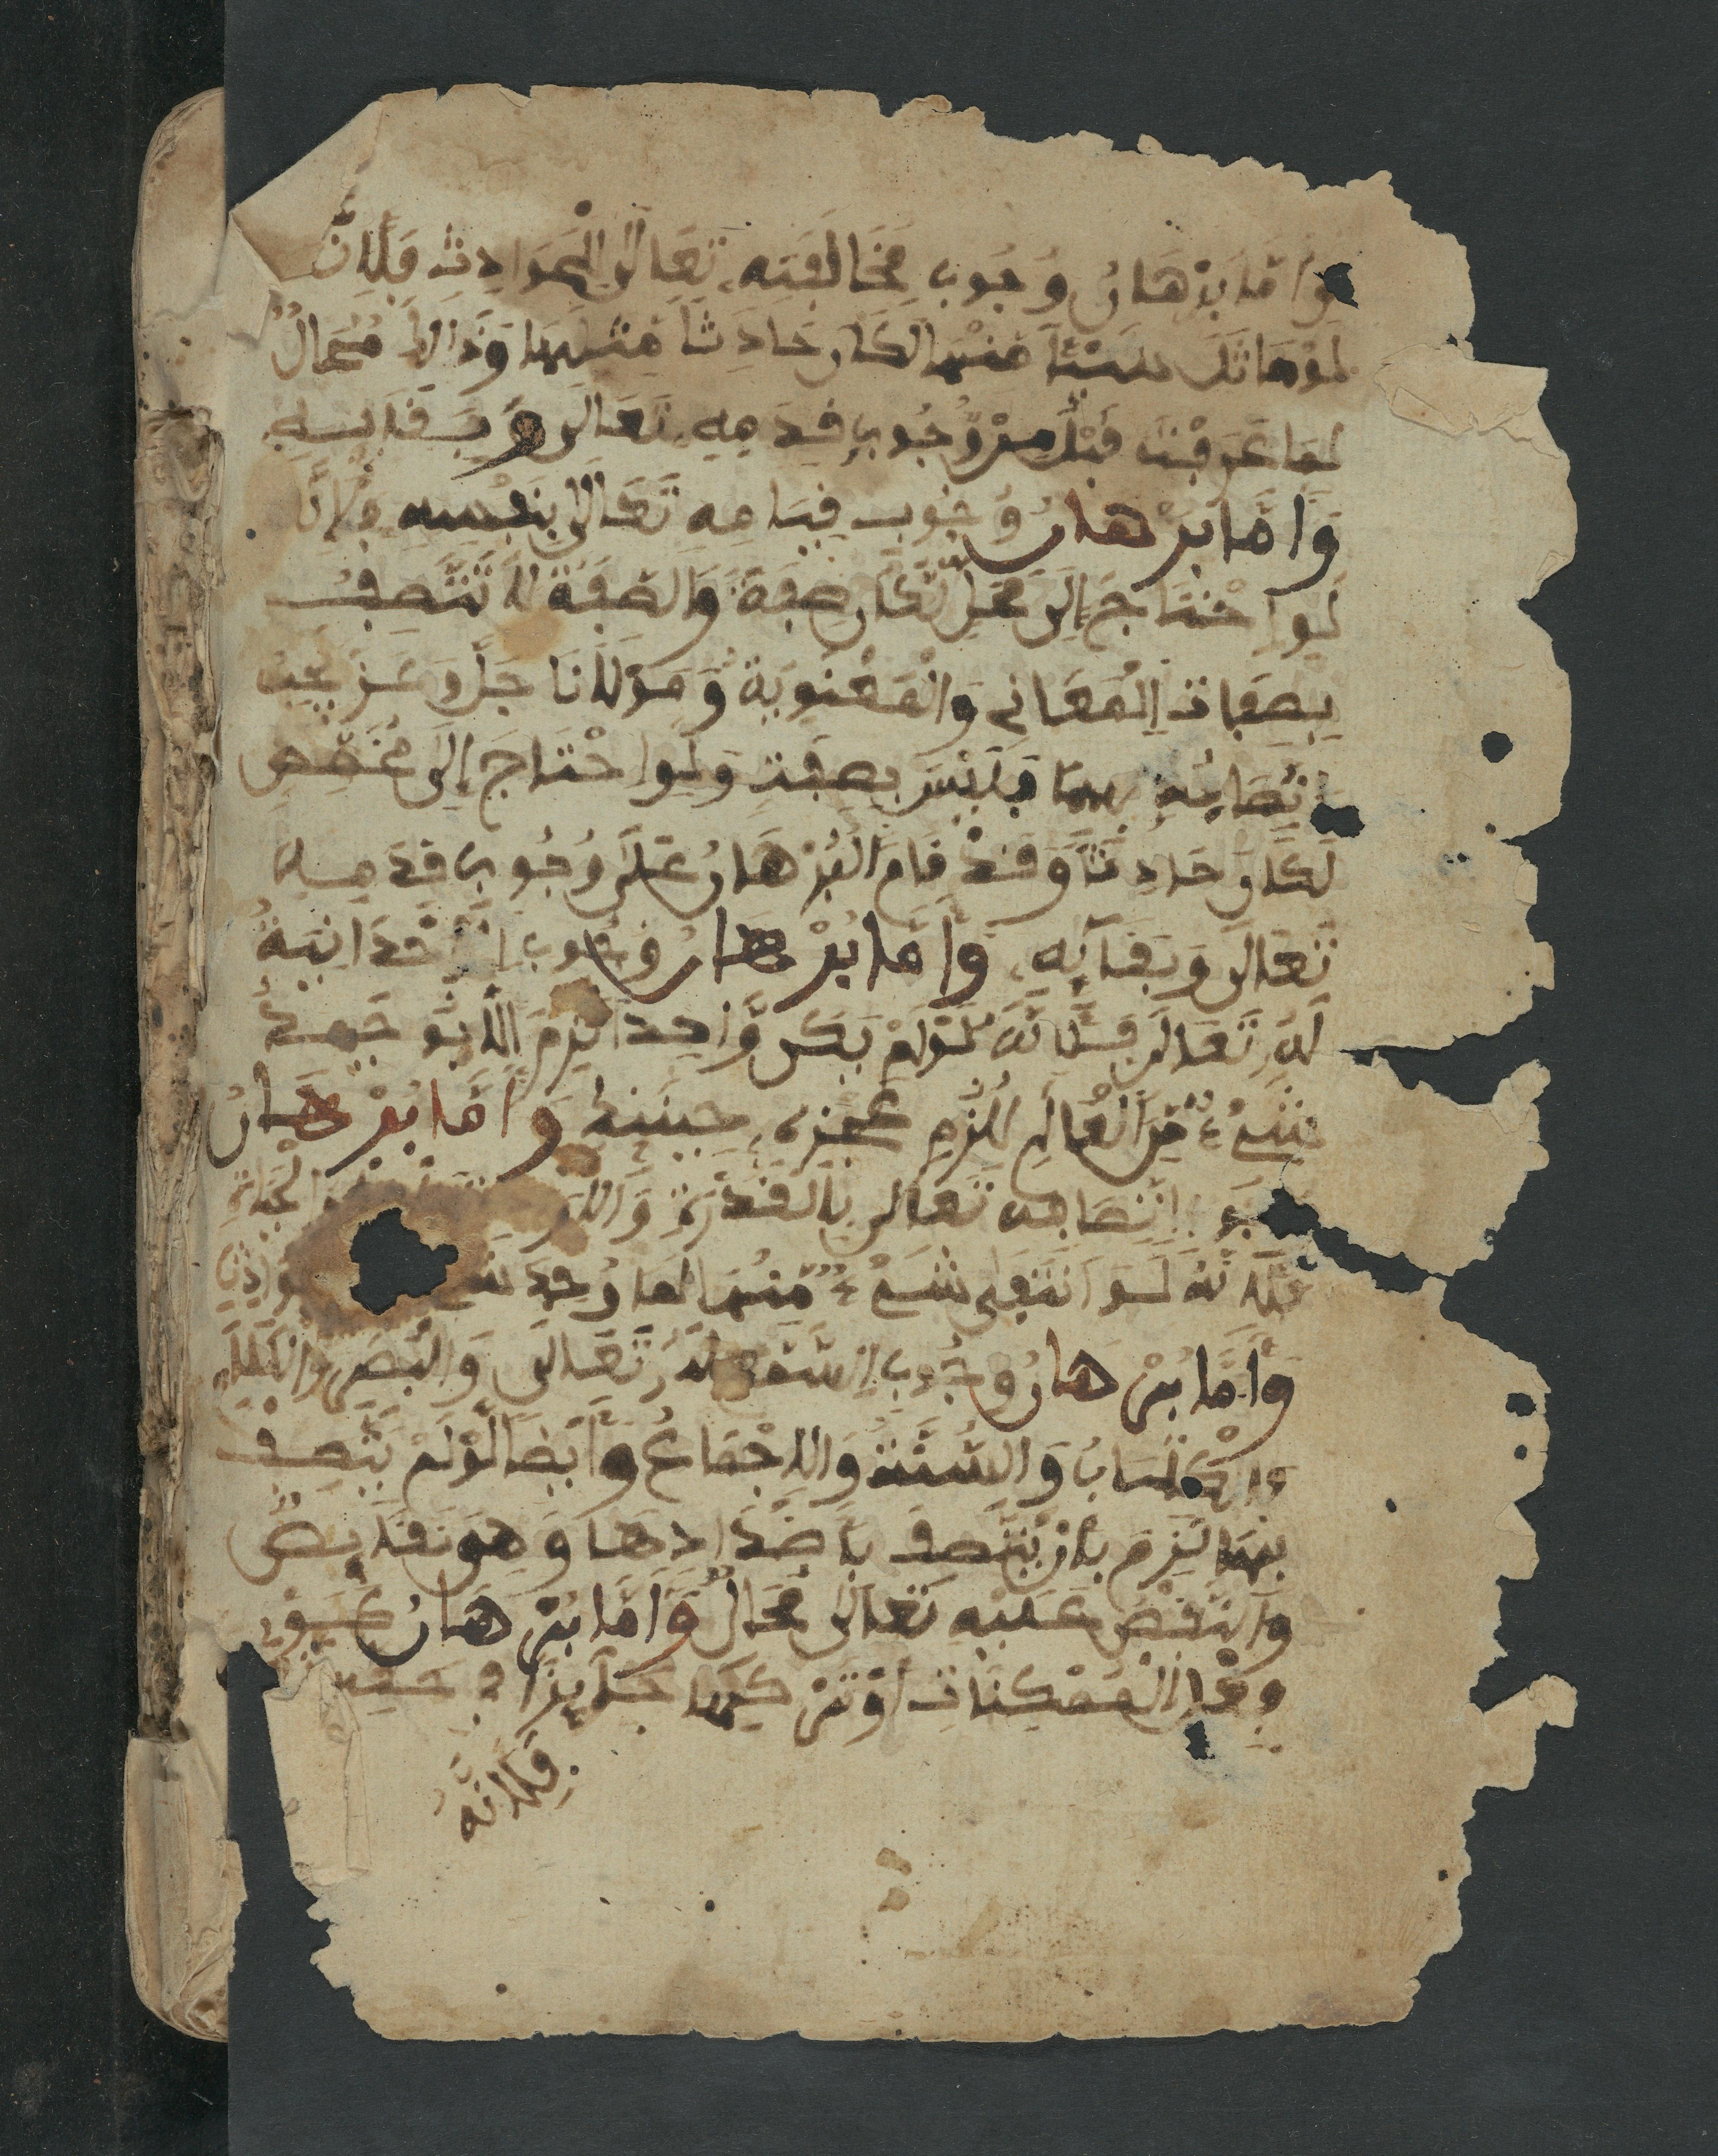 وَأَمَّا بُرْهَانُ وُجُوبِ مُخَالَفَتِهِ تَعَالَى لِلْحَوَادِثِ فَلِأَنَّهُ
لَوْ مَاثَلَ شَيْئاً مِنْهَا لَكَانَ حَادِثاً مِثْلَهَا وَذَالِكَ مُحَالٌ
لِمَا عَرَفْتَ قَبْلُ مِنْ وُجُوبِ قِدَمِهِ تَعَالَى وَبَقَايِهِ
وَأَمَّا بُرْهَانُ وُجُوبِ قِيَامِهِ تَعَالَى بِنَفْسِهِ فَلِأَنَّهُ
لَوِ احْتَاجَ إِلَى مَحَلٍّ لَكَانَ صِفَةً وَالصِّفَةُ لَا تَتَّصِفُ
بِصِفَاتِ الْمَعَانِي وَالْمَعْنَوِيَةِ وَمَوْلَانَا جَلَّ وَعَزَّ يَجِبُ
اتِّصَافُهُ بِهِمَا فَلَيْسَ بِصِفَةٍ وَلَوِ احْتَاجَ إِلَى مُخَصِّصٍ
لَكَانَ حَادِثاً وَقَدْ قَامَ الْبُرْهَانُ عَلَى وُجُوبِ قِدَمِهِ
تَعَالَى وَبَقَآيِهِ وَأَمَّا بُرْهَانُ وُجُوبِ الْوَحْدَانِيَةِ
لَهُ تَعَالَى فَلِأَنَّهُ لَوْ لَمْ يَكُنْ وَّاحِداً لَزِمَ أَلَّا يُوجَدَ
شَيْءٌ مِنَ الْعَالَمِ لِلُزُومِ عَجْزِهِ حِينَئِذٍ وَأَمَّا بُرْهَانُ
اتِّصَافِهِ تَعَالَى بِالْقُدْرَةِ وَالْحَيَاةِ
فَلِأَنَّهُ لَوِ انْتَفَى شَيْءٌ مِنْهَا لَمَا وُجِدَ
وَأَمَّا بُرْهَانُ وُجُوبِ السَّمْعِ لَهُ تَعَالَى وَالْبَصَرِ وَالْكَلَامِ
فَالْكِتَابُ وَالسُّنَّةُ وَالْإِجْمَاعُ وَأَيْضاً لَوْ لَمْ يَتَّصِفْ
بِهَا لَزِمَ بِأَنْ يَتَّصِفَ بِأَضْدَادِهَا وَهِيَ نَقَايِصُ
وَالنَّقْصُ عَلَيْهِ تَعَالَى مُحَالٌ وَأَمَّا بُرْهَانُ كَوْنِ
فِعْلِ الْمُمْكِنَاتِ أَوْ تَرْكِهَا جَآيِزاً فِي حَقِّهِ
فَلِأَنَّهُ